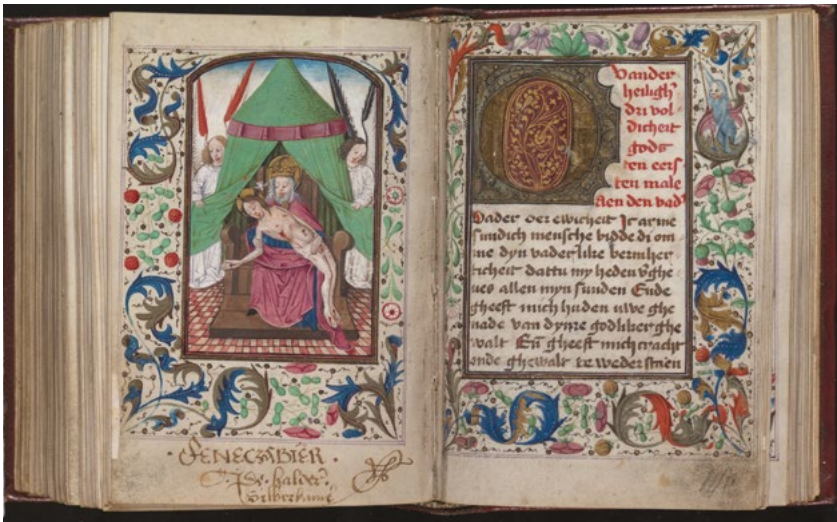 Vander
heiligh
dri vol
dicheit
gods
ten eers
ten male
Aen den vad
Vader der ewicheit Ic arme
sundich mensche bidde di om
me dyn vaderlike bermher
ticheit dattu my heden v͛ghe
ues allen myn sunden Ende
gheeft mich huden uwe ghe
nade van dynre godliker ghe
walt Eñ gheeft mich cracht
ende ghewalt te wederstaen